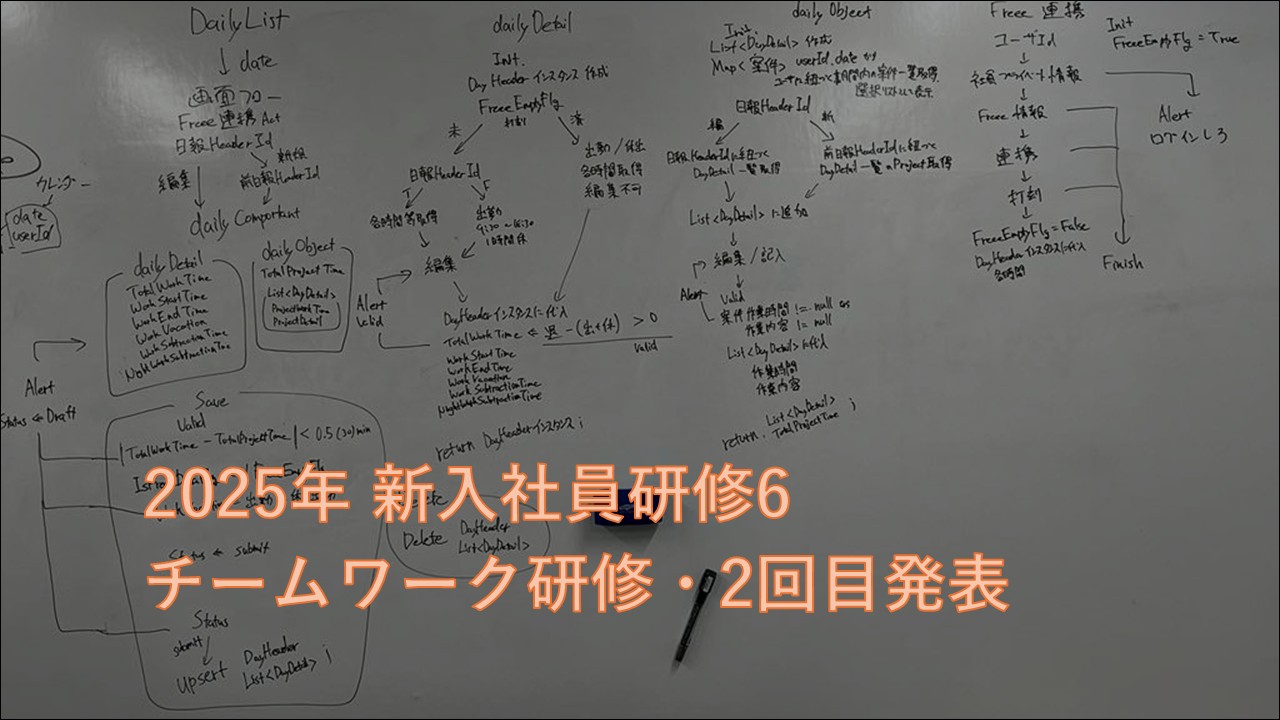 DailyList
↓ date
画面フロー
Freee連携Act
日報HeaderId
編集
新規
前日報HeaderId
daily Component
カレンダー
date
userId
dailyDetail
TotalWorkTime
WorkStartTime
WorkEndTime
WorkVacation
WorkSubtractionTime
NightWorkSubtractionTime
daily Object
TotalProjectTime
List<DayDetail>
ProjectWorkTime
ProjectDetail
Alert
Status ← Draft
Save
Valid
|TotalWorkTime - TotalProjectTime| < 0.5(30)min
Status ← submit
Status
submit
upsert
DayHeader
List<DayDetail> ;
Delete
DayHeader
List<DayDetail>
daily Detail
Init.
DayHeaderインスタンス作成
FreeeEmptyFlg
打刻
未
済
日報HeaderId
T
F
各時間等取得
出勤
9:30 ~ 18:30
1時間休
出勤/休出
各時間取得
編集不可
編集
Alert
Valid
DayHeaderインスタンスに代入
TotalWorkTime ← 退-(出+休) > 0
Valid
WorkStartTime
WorkEndTime
WorkVacation
WorkSubtractionTime
NightWorkSubtractionTime
return DayHeaderインスタンス ;
daily Object
Init.
List<DayDetail> 作成
Map<案件> userId.date から
ユーザに紐づく期間内の案件一覧取得
選択リストとして表示
日報HeaderId
編
新
日報HeaderIdに紐づく
DayDetail一覧取得
前日報HeaderIdに紐づく
DayDetail一覧のProject取得
List<DayDetail>に追加
編集/記入
Alert
Valid
案件作業時間 != null &&
作業内容 != null
List<DayDetail>に代入
作業時間
作業内容
return List<DayDetail>
TotalProjectTime ;
Freee 連携
ユーザId
社員プライベート情報
Freee情報
連携
打刻
FreeeEmptyFlg = False
DayHeaderインスタンスに代入
各時間
Init
FreeeEmptyFlg = True
Alert
ログインしろ
Finish
2025年 新入社員研修6
チームワーク研修・2回目発表